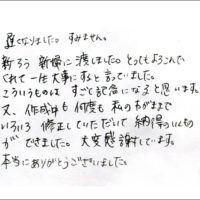 遅くなりました。すみません。
新ろう新婦に渡しました。とってもよろこんで
くれて一生大事にすると言っていました。
こういうものは すごく記念になると思います。
又、作成中も何度も私のわがままで
いろいろ修正していただいて納得のいくもの
ができました。大変感謝しています。
本当にありがとうございました。